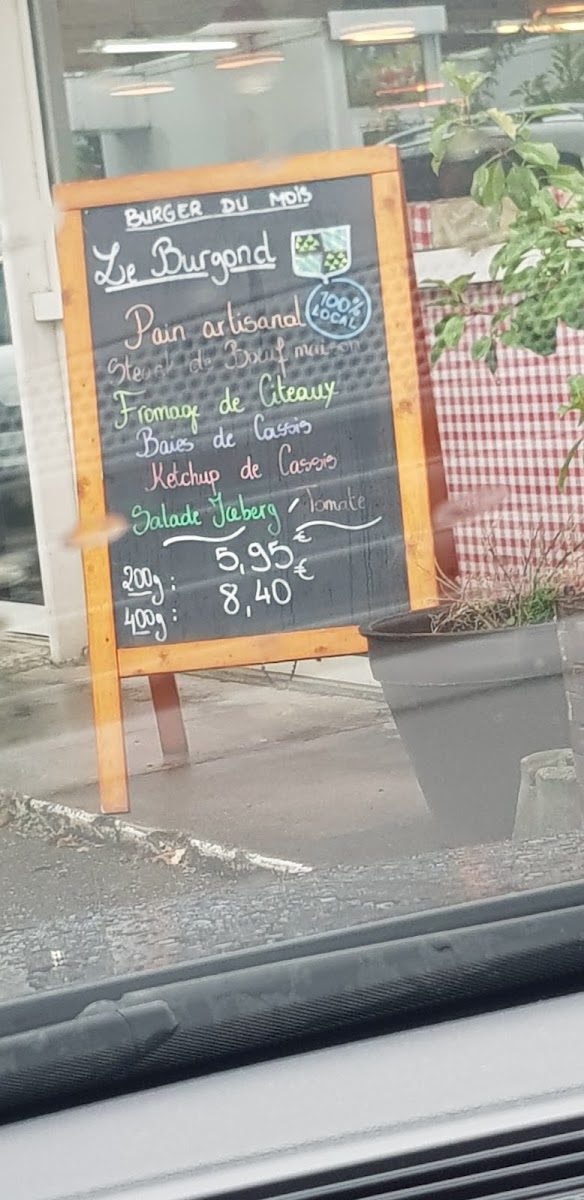 BURGER DU MOIS
Le Burgond
100%
LOCAL
Pain artisanal
Steak de Bœuf maison
Fromage de Citeaux
Baies de Cassis
Ketchup de Cassis
Salade Iceberg / Tomate
200g : 5,95€
400g : 8,40€